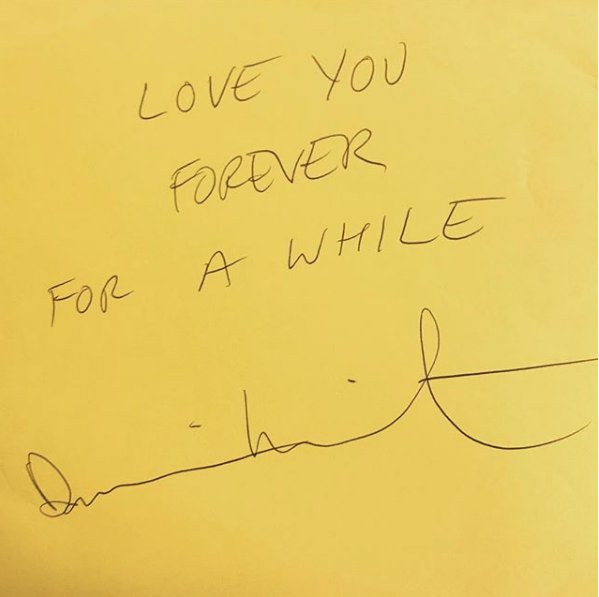 LOVE YOU
FOREVER
FOR A WHILE